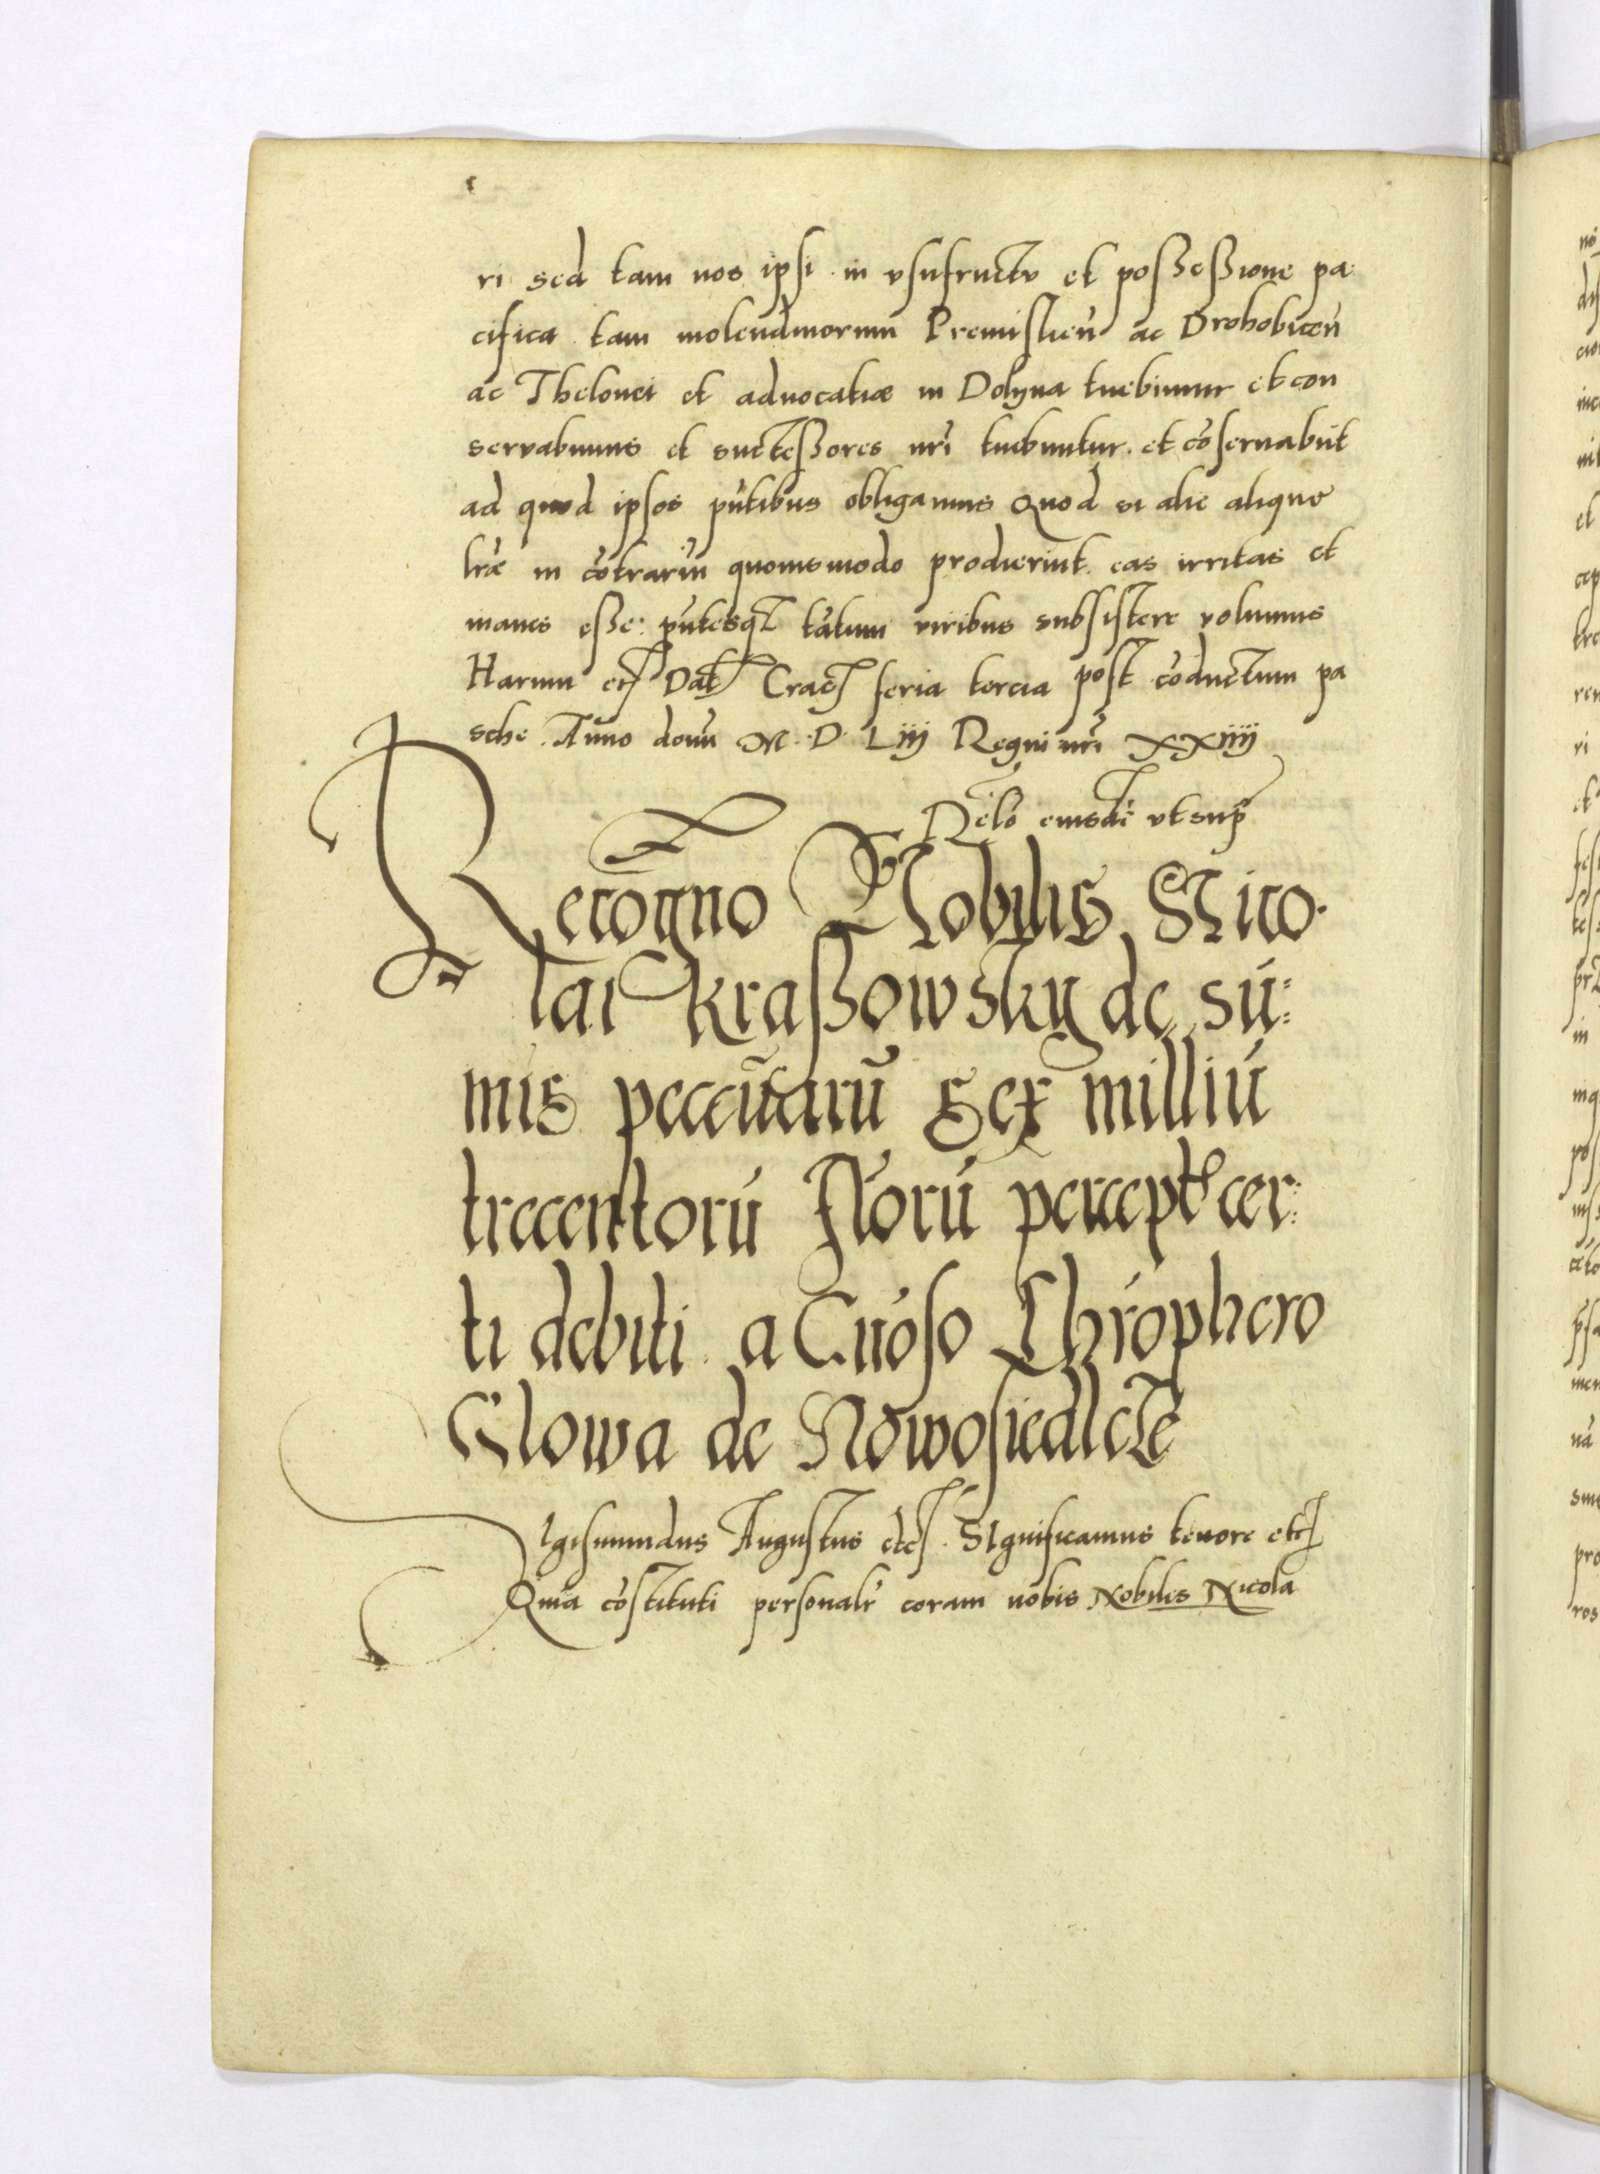 ri sed tam nos ipsi in vsufructv et possessione pa
cifica tam molendinorum Premislien̄ ac Drohobicen̄
ac Thelonei et aduocatiæ in Dolyna tuebimur et con
servabimus et suctessores nr̄i tuebuntur et cōseruabūt
ad quod ipsos pn̄tibus obligamus Quod si alie alique
lr̄æ in cōtrariū quouismodo prodierint eas irritas et
inanes esse: pn̄tesqꝫ tātum viribus subsistere volumus
Harum etc̄ Dat̄ Crac̄ feria tercia post cōductum pa
sche Anno domī M D Liij Regni nr̄i XXiiij
Relō eiusdē vt sup̄
Recogno Nobilis Nico
lai krassowsky de sū:
mis peccūiarū Sex milliū
trecentorū Florū percept cer:
ti debiti a Gn̄oso Chrōphero
Glowa de Nowosiedlcꝫe
Sigismundus Augustus etc̄ SIgnificamus tenore etc̄
Quia cōstituti personalr̄ coram nobis Nobiles Nicola